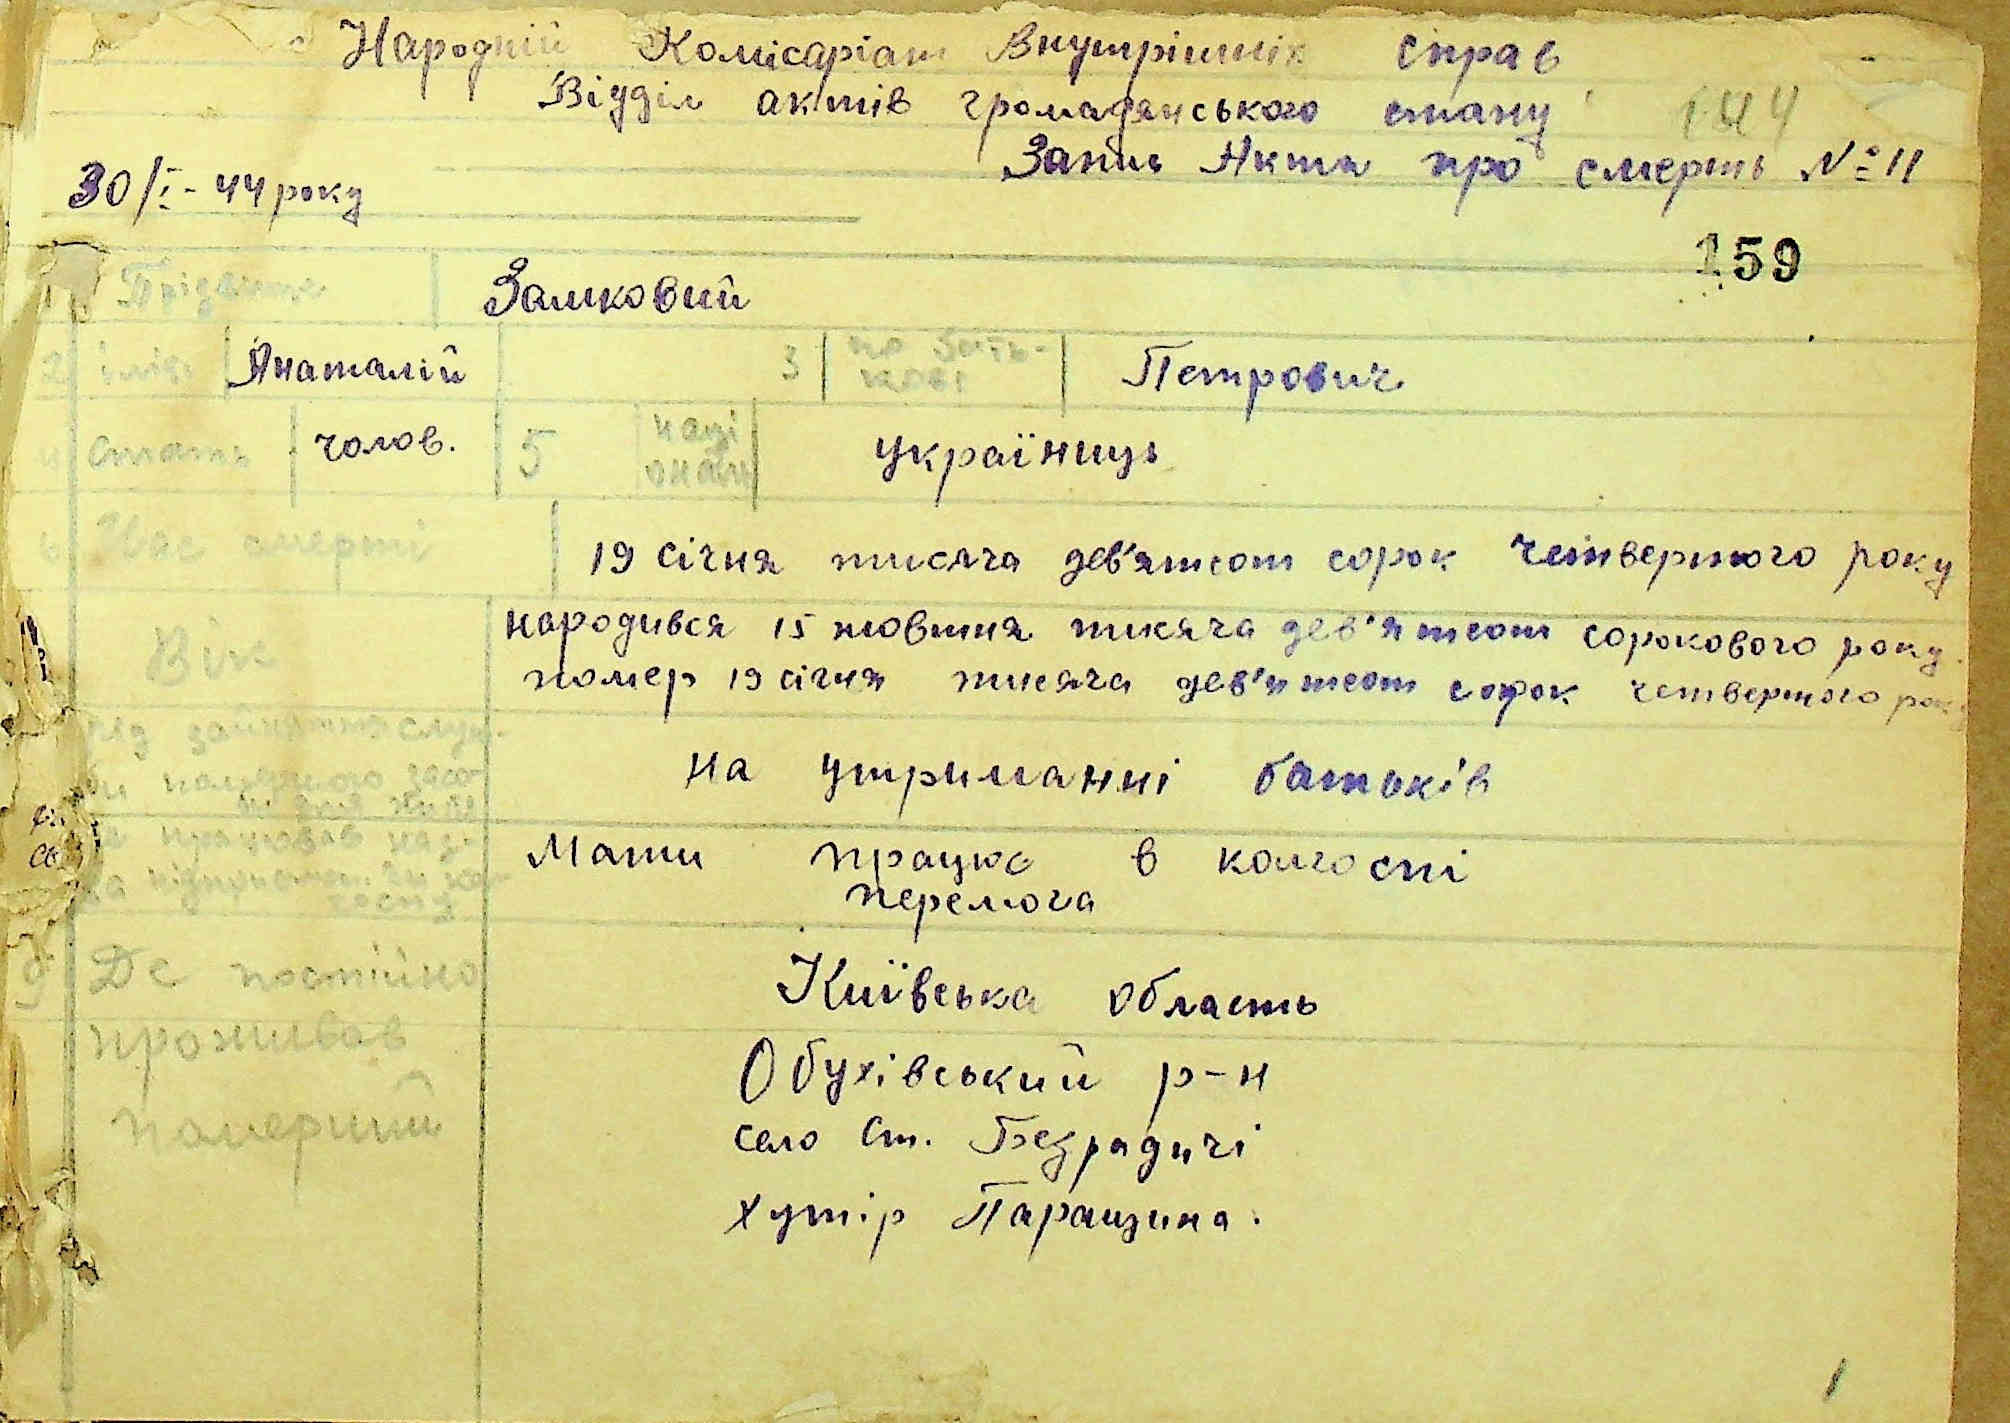 Народній Комісаріат Внутрішніх справ
Відділ актів громадянського стану 144
Запись Акта про смерть № 11
30/I - 44 року
159
1 Прізвище Замковий
2 імія Анаталій 3 по бать-
кові Петрович
4 стать чолов. 5 наці
ональ україниць
6 Час смерті 19 січня тисяча дев'ятсот сорок четвертого року
Вік народився 15 жовтня тисяча дев'ятсот сорокового року
помер 19 січня тисяча дев'ятсот сорок четвертого рок
рід зайняття служ-
на утриманні батьків
Мати працює в колгоспі
перемога
9 Де постійно
проживав
померший
Київська область
Обухівський р-н
село Ст. Безрадичі
хутір Паращина.